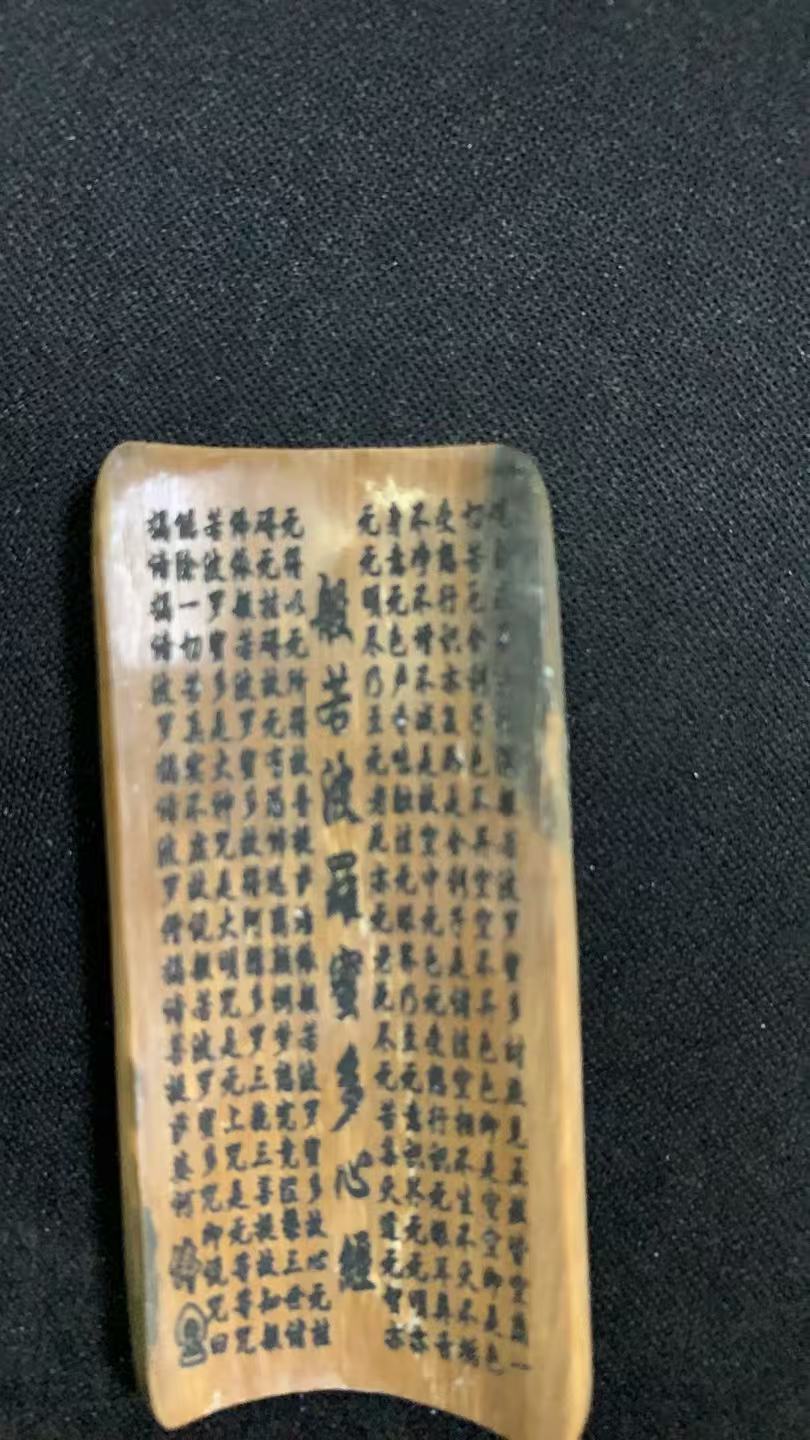 般若波罗蜜多时照见五蕴皆空度一
切苦厄舍利子色不异空空不异色色即是空空即是色
受想行识亦复如是舍利子是诸法空相不生不灭不垢
不净不增不减是故空中无色无受想行识无眼耳鼻舌
身意无色声香味触法无眼界乃至无意识界无无明亦
无无明尽乃至无老死亦无老死尽无苦集灭道无智亦
般若波羅蜜多心經
无得以无所得故菩提萨埵依般若波罗蜜多故心无挂
碍无挂碍故无有恐怖远离颠倒梦想究竟涅槃三世诸
佛依般若波罗蜜多故得阿耨多罗三藐三菩提故知般
若波罗蜜多是大神咒是大明咒是无上咒是无等等咒
能除一切苦真实不虚故说般若波罗蜜多咒即说咒曰
揭谛揭谛波罗揭谛波罗僧揭谛菩提萨婆诃